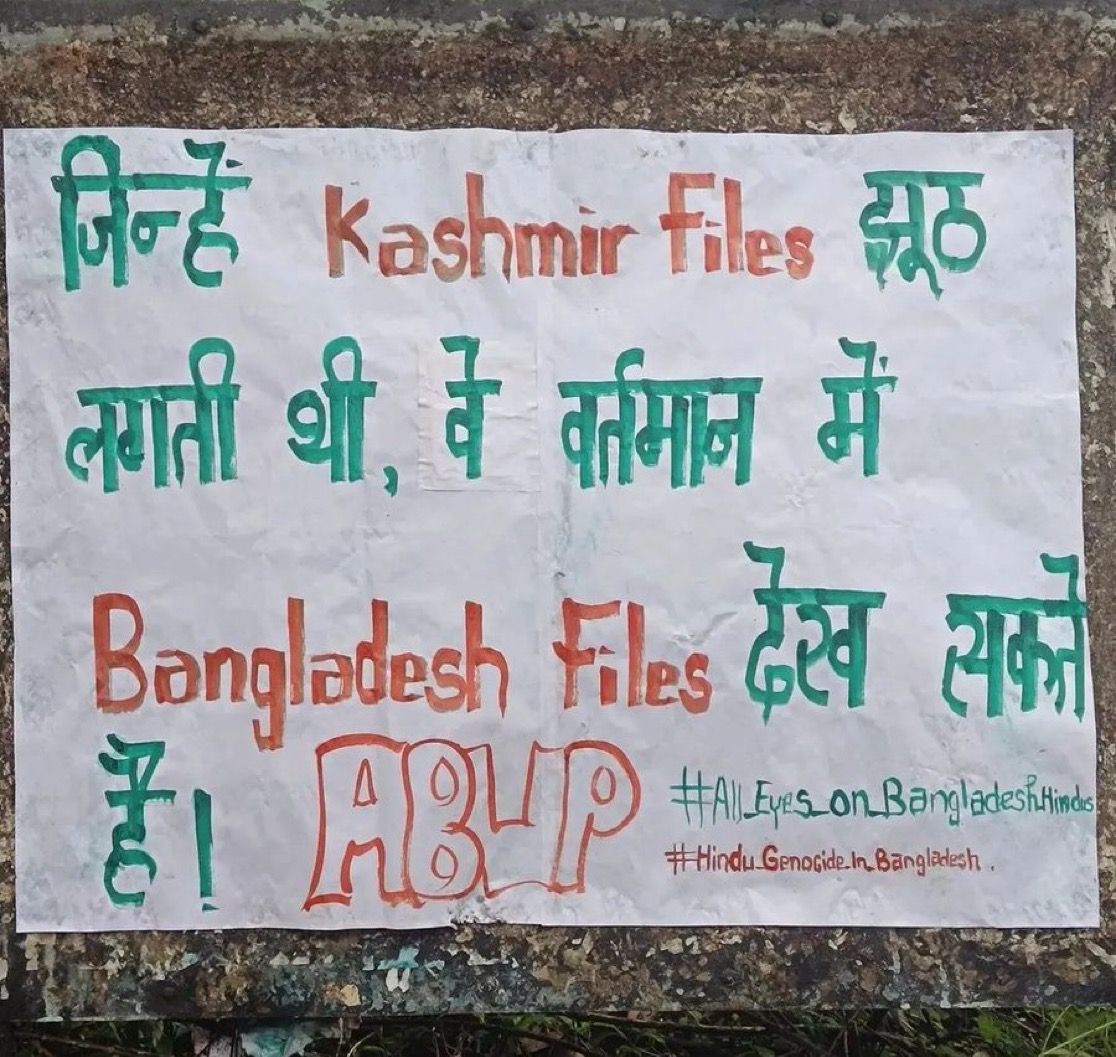 जिन्हें Kashmir Files झूठ
लगती थी, वे वर्तमान में
Bangladesh Files देख सकते
है! ABVP
#All_Eyes_on_Bangladesh_Hindus
#Hindu_Genocide_In_Bangladesh.